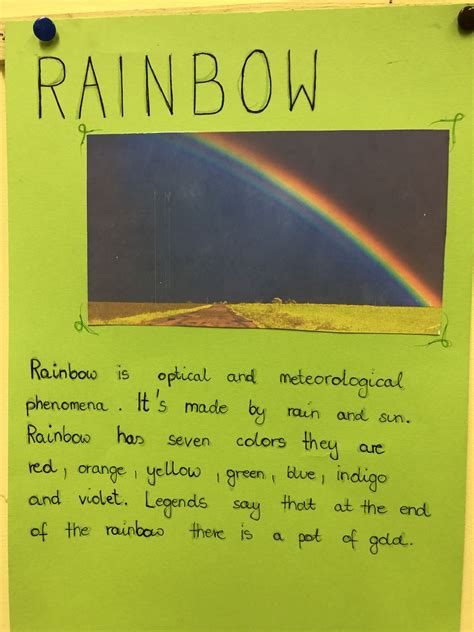 RAINBOW
Rainbow is optical and meteorological
phenomena. It's made by rain and sun.
Rainbow has seven colors they are
red, orange, yellow, green, blue, indigo
and violet. Legends say that at the end
of the rainbow there is a pot of gold.